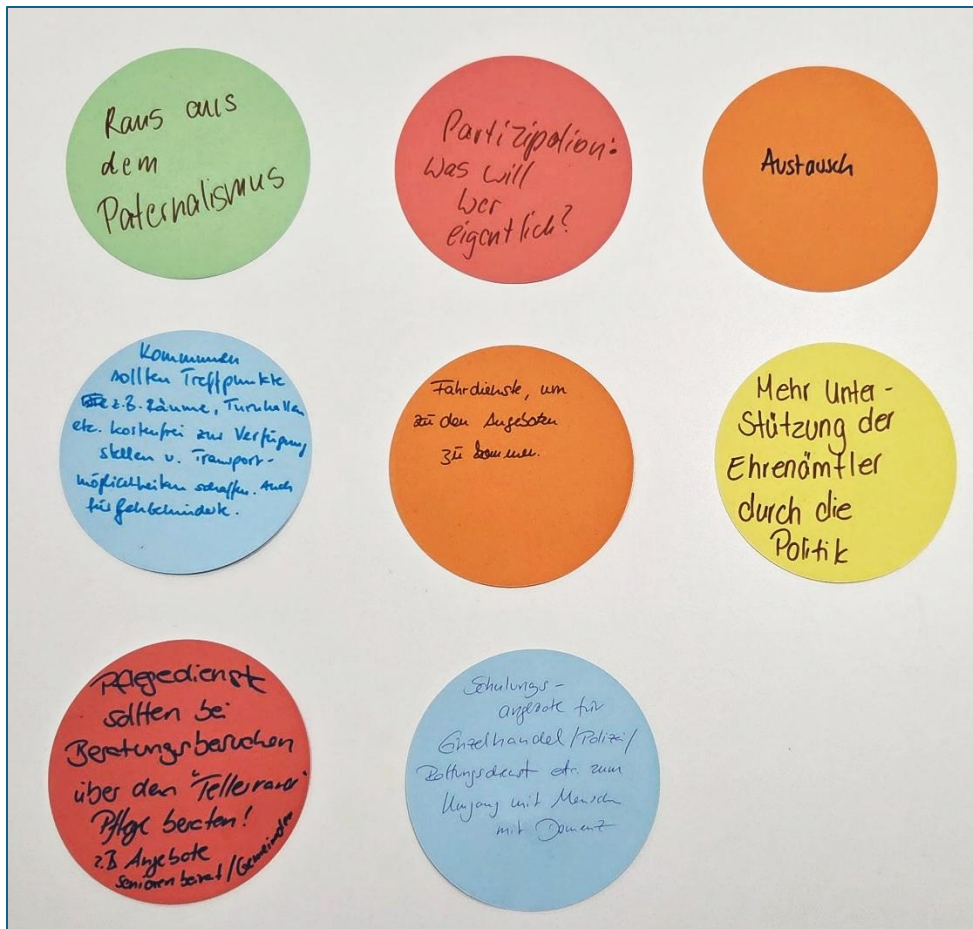 Raus aus
dem
Paternalismus
Partizipation:
Was will
wer
eigentlich?
Austausch
Kommunen
sollten Treffpunkte
z.B. Räume, Turnhallen
etc. kostenfrei zur Verfügung
stellen u. Transport-
möglichkeiten schaffen. Auch
für Gehbehinderte.
Fahrdienste, um
zu den Angeboten
zu kommen.
Mehr Unter-
stützung der
Ehrenämtler
durch die
Politik
Pflegedienste
sollten bei
Beratungsbesuchen
über den "Tellerrand"
Pflege beraten!
z.B Angebote
Seniorenbeirat/Gemeinden
Schulungs-
angebote für
Einzelhandel/Polizei/
Rettungsdienst etc. zum
Umgang mit Mensch
mit Demenz